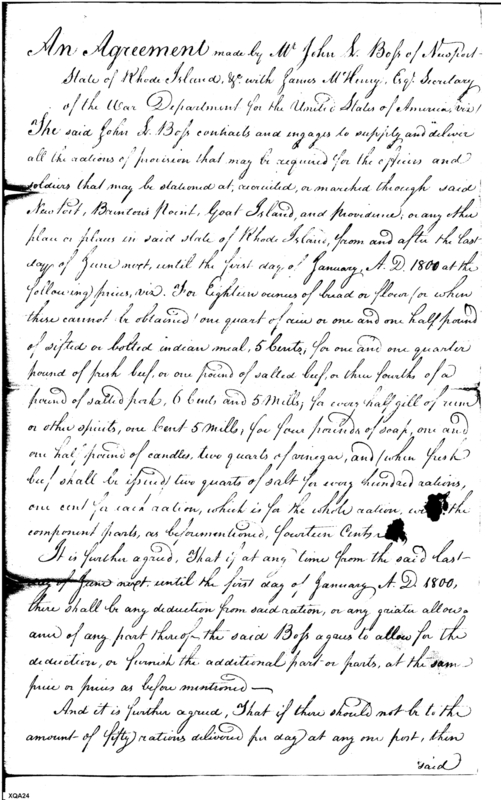 An Agreement made by Mr. John L. Boss of Newport
State of Rhode Island &c. with James McHenry, Esqr. Secretary
of the War Department for the United States of America, viz!
The said John L. Boss contracts and engages to supply and deliver
all the rations of provision that may be required for the officers and
soldiers that may be stationed at, recruited, or marched through said
Newport, Brintons Point, Goat Island, and Providence; or any other
place or places in said state of Rhode Island, from and after the last
day of June next, until the first day of January, A. D. 1800 at the
following prices, viz. For Eighteen ounces of bread or flour (or when
these cannot be obtained) one quart of rice or one and one half pound
of sifted or bolted indian meal, 5 Cents, for one and one quarter
pound of fresh beef, or one pound of salted beef, or three fourths of a
pound of salted pork, 6 Cents and 5 Mills; for every half gill of rum
or other spirits, one Cent 5 Mills; for four pounds of soap, one and
one half pound of candles, two quarts of vinegar, and (when fresh
beef shall be issued) two quarts of salt for every hundred rations,
one cent for each ration, which is for the whole ration, the
component parts, as beforementioned, fourteen Cents
It is further agreed, That if at any time from the said last
day of June next, until the first day of January A. D. 1800,
there shall be any deduction from said ration, or any greater allow-
ance of any part thereof the said Boss agrees to allow for the
deduction, or furnish the additional part or parts, at the same
price or prices as before mentioned —
And it is further agreed, That if there should not be to the
amount of fifty rations delivered per day at any one post, then
said
XQA24